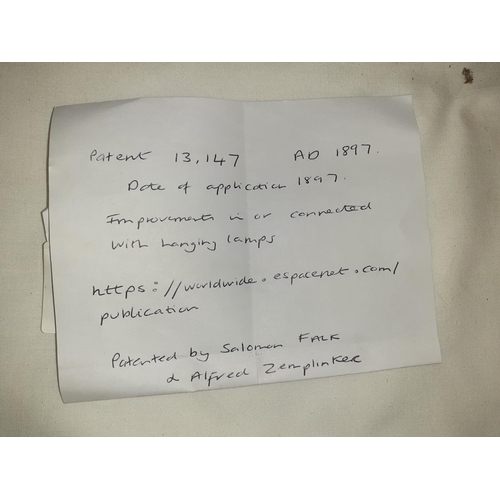 Patent 13,147 AD 1897.
Date of application 1897.
Improvements in or connected
with hanging lamps
https://worldwide.espacenet.com/
publication
Patented by Salomon FALK
& Alfred Zemplinker